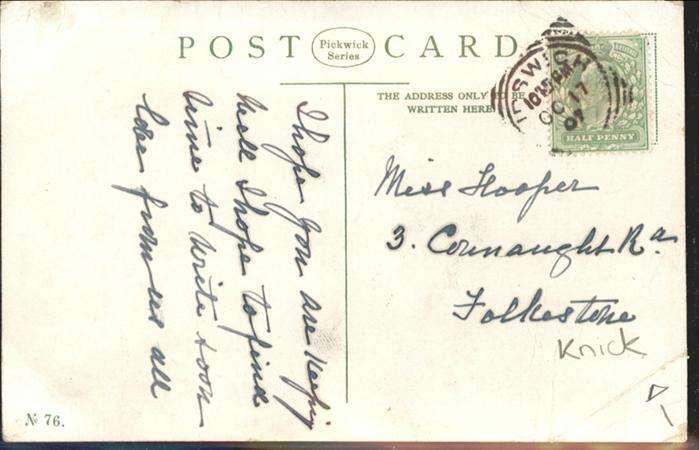 POST CARD
Pickwick
Series
THE ADDRESS ONLY TO BE
WRITTEN HERE
IPSWICH
OC 17
07
HALF PENNY
I hope you are keeping
well I hope to find
time to write soon
love from us all
Miss Hooper
3. Connaught Rd
Folkestone
Knick
№ 76.